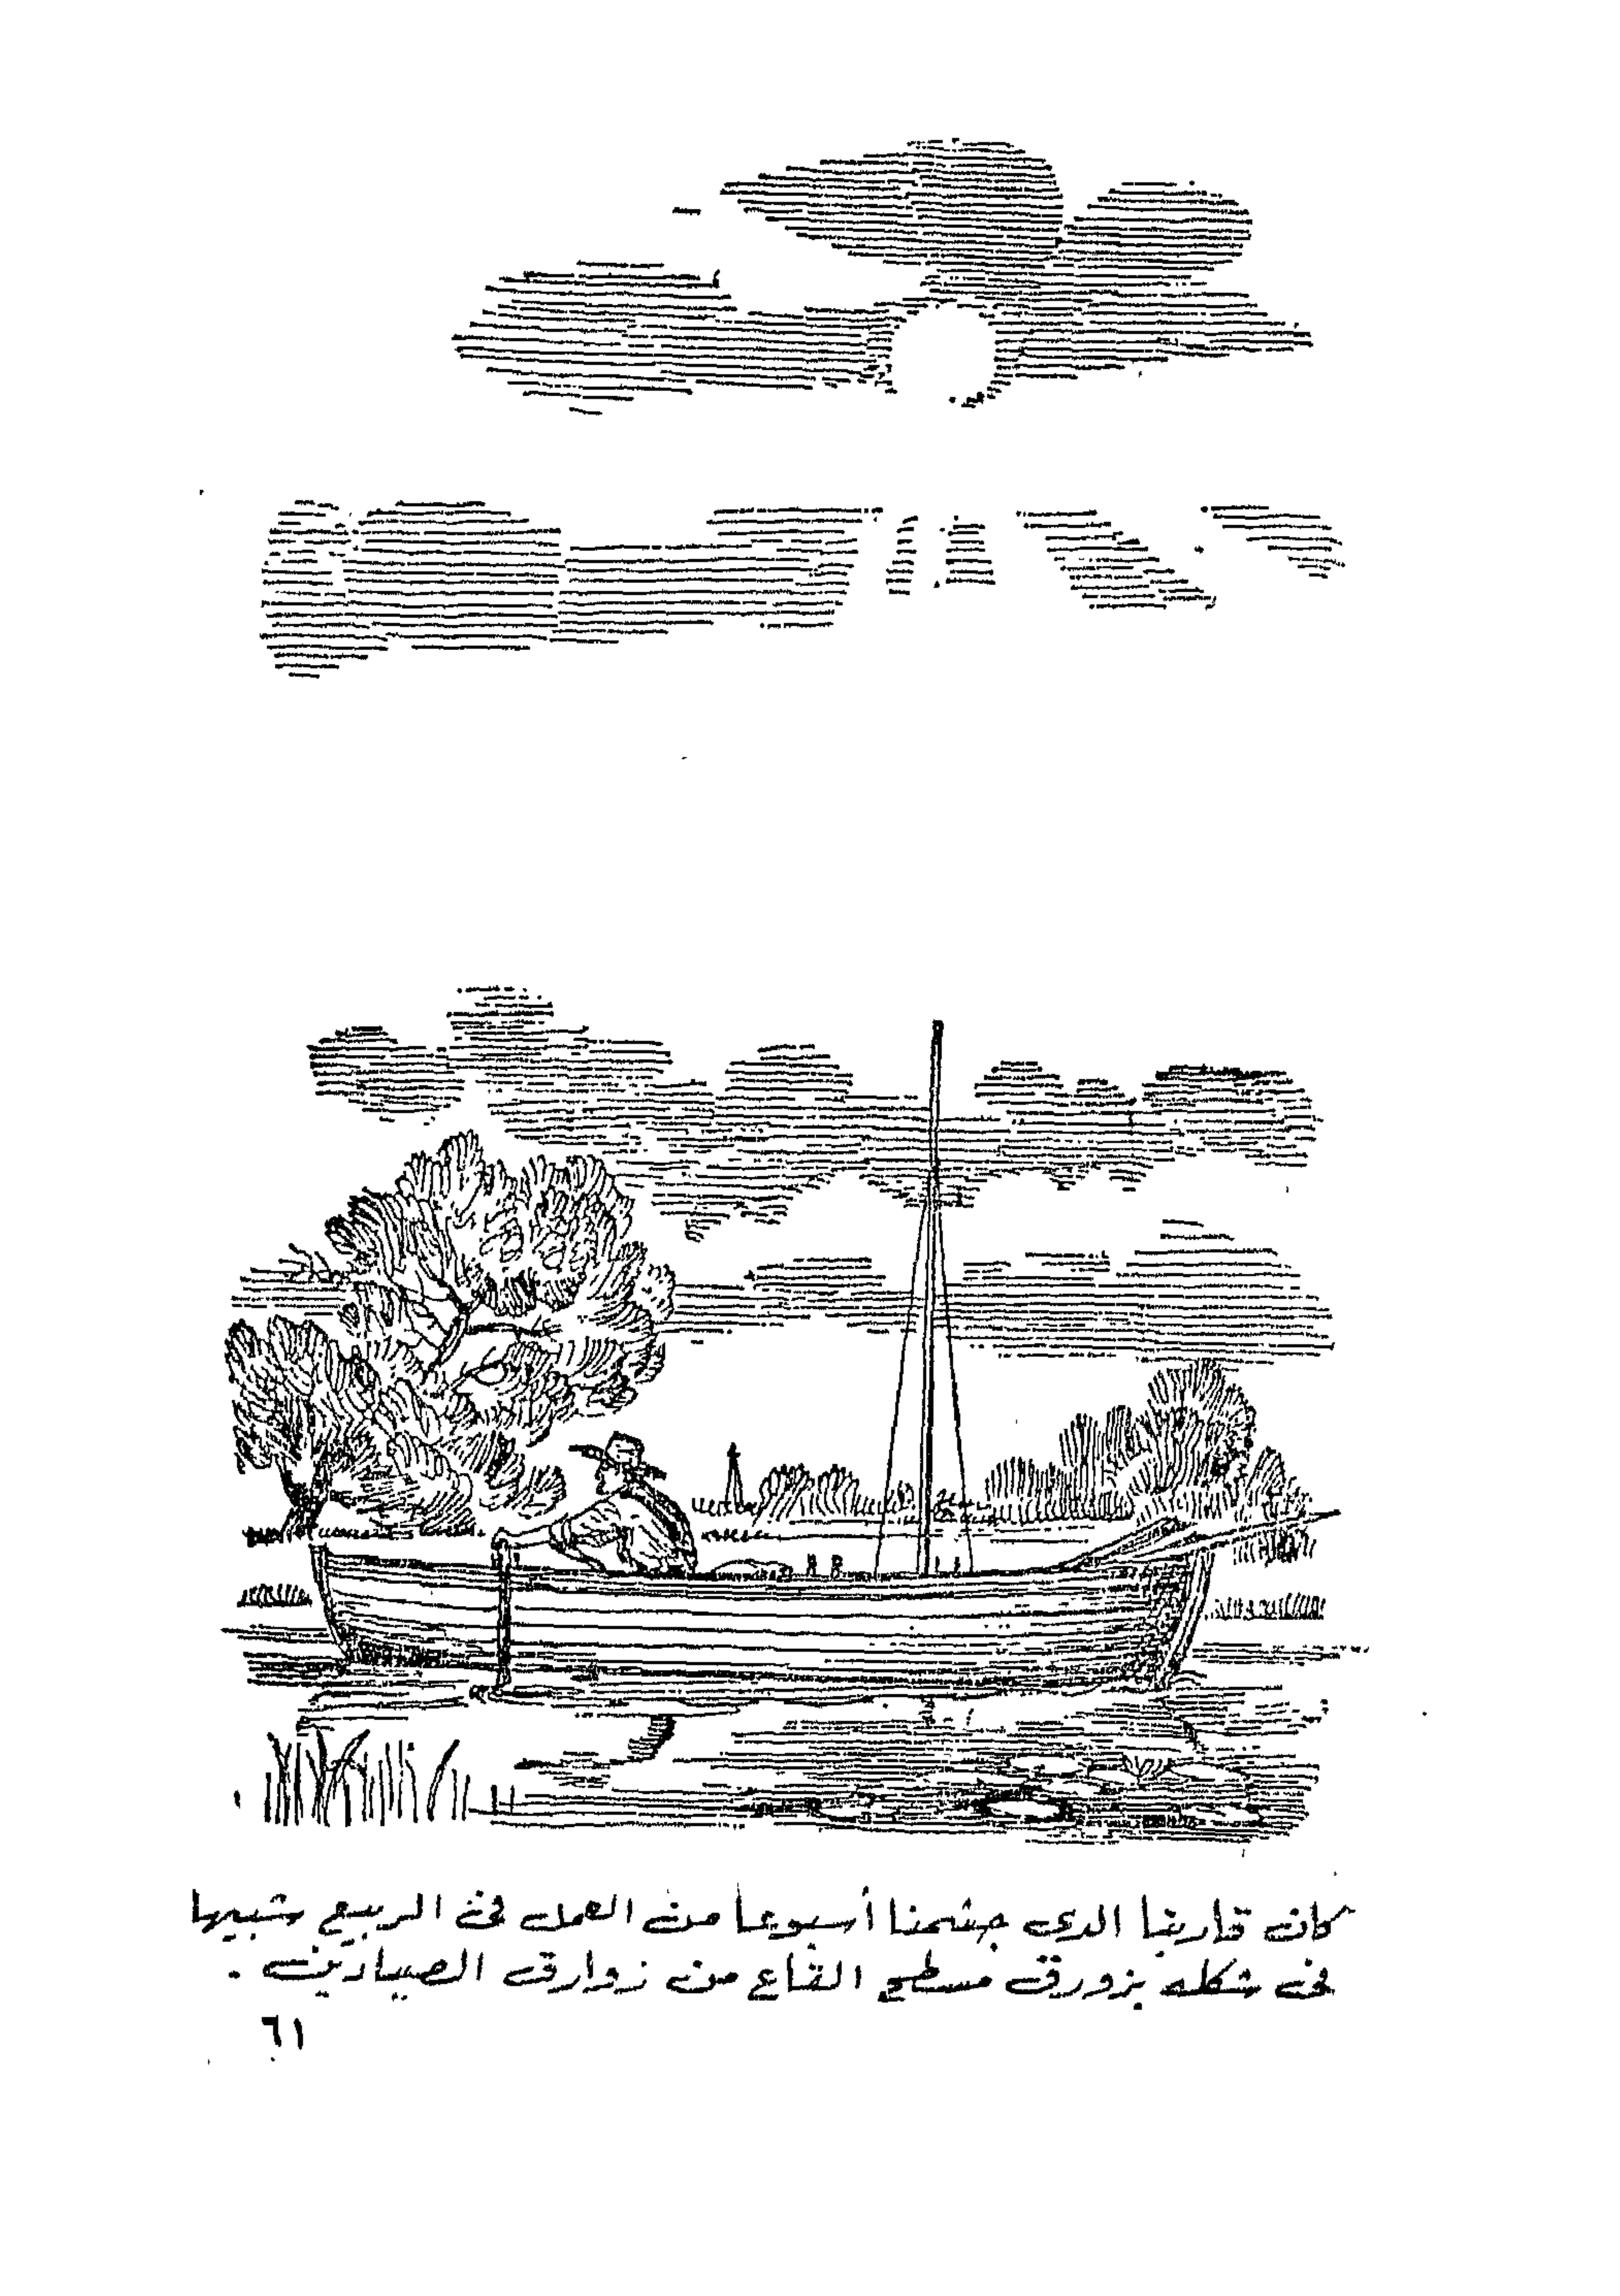 كان قاربنا الذى جشمنا أسبوعا من العمل فى الربيع شبيها
فى شكله بزورق مسطح القاع من زوارق الصيادين .
٦١